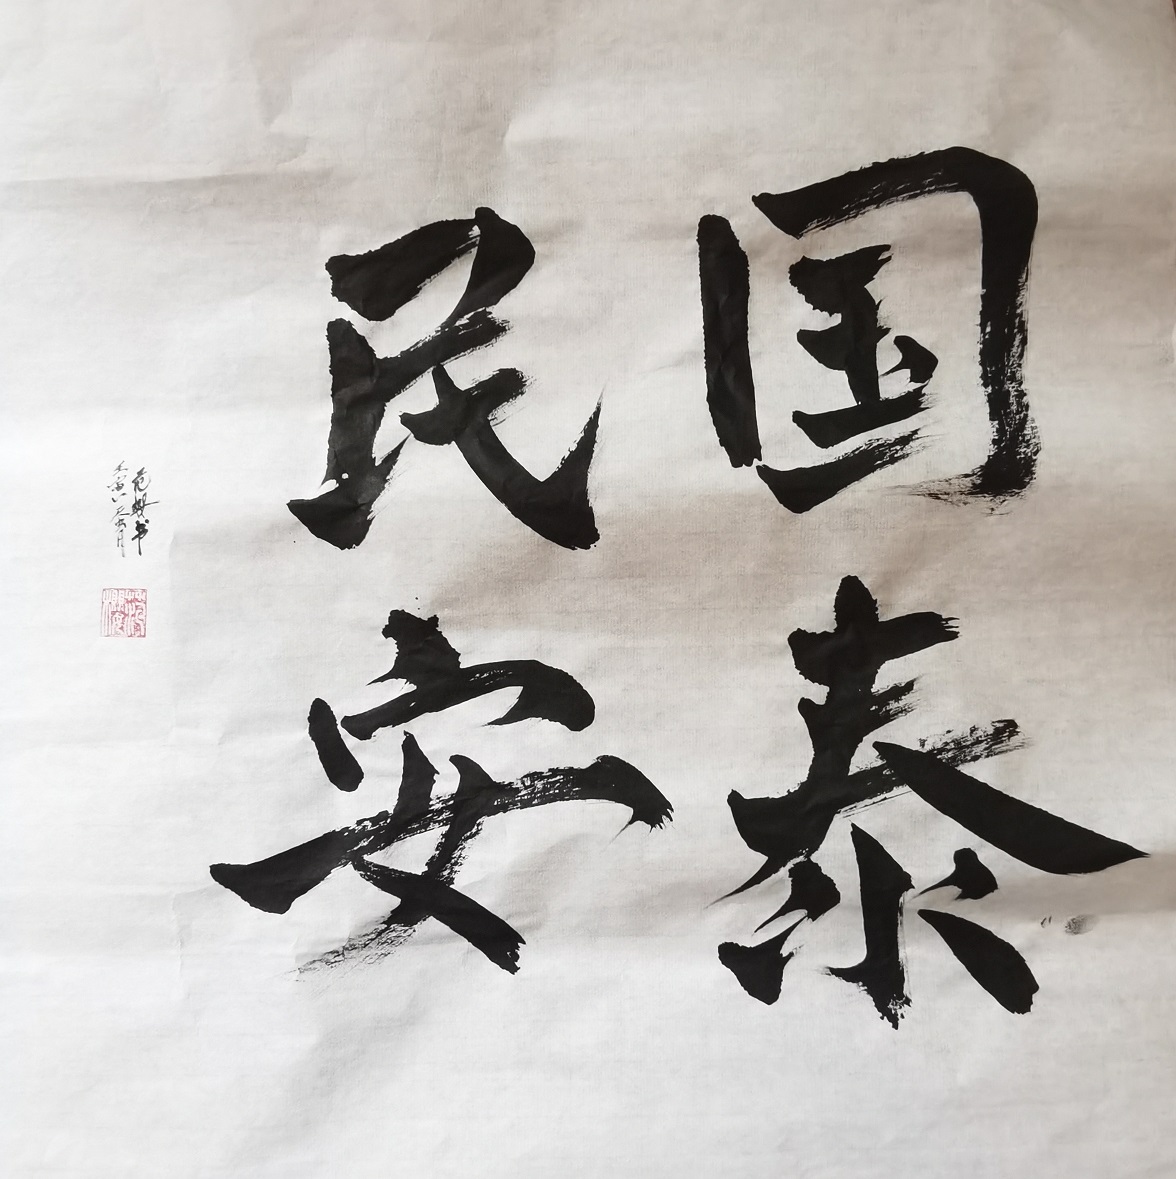 国泰
民安